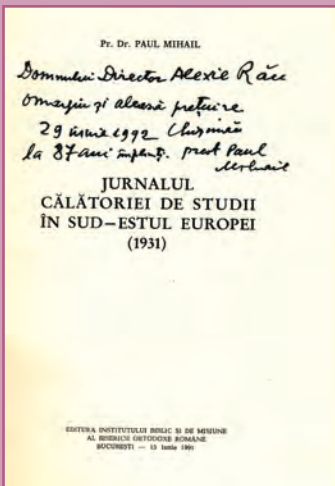 Pr. Dr. PAUL MIHAIL
Domnului Director Alexie Rău
omagiu și aleasă prețuire
29 iunie 1992 Chișinău
la 87 ani împliniți. preot Paul
Mihail
JURNALUL
CĂLĂTORIEI DE STUDII
ÎN SUD—ESTUL EUROPEI
(1931)
EDITURA INSTITUTULUI BIBLIC ȘI DE MISIUNE
AL BISERICII ORTODOXE ROMÂNE
BUCUREȘTI — 15 Iunie 1991